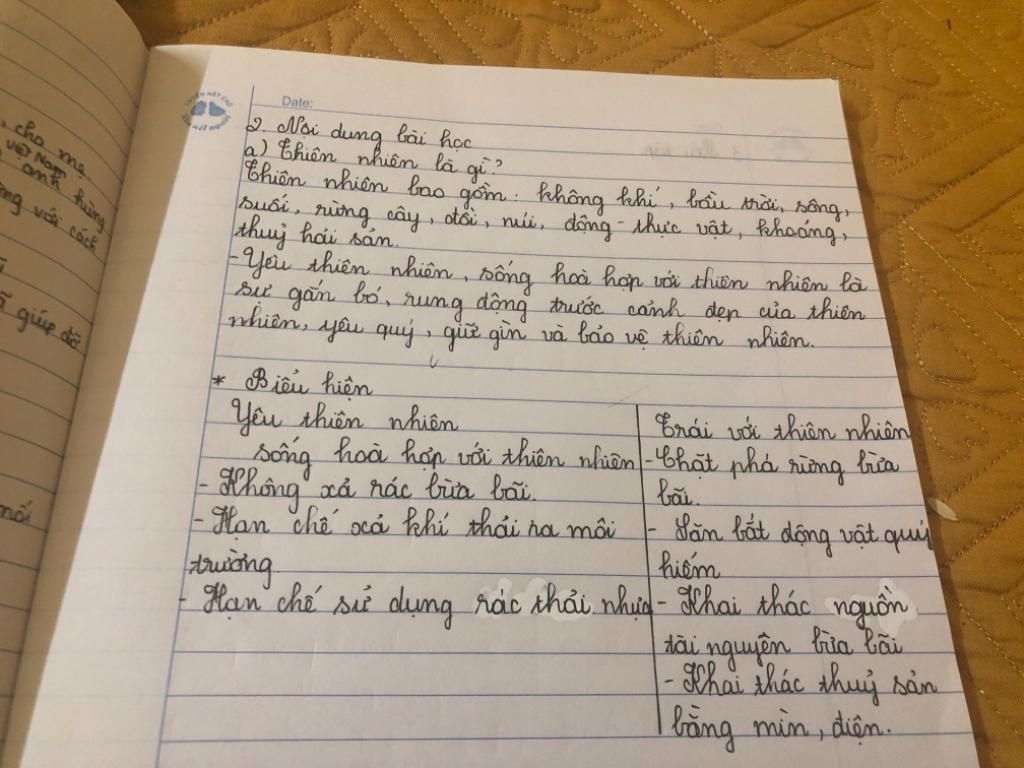 Date:
2. Nội dung bài học
a) Thiên nhiên là gì?
Thiên nhiên bao gồm: không khí, bầu trời, sông,
suối, rừng cây, đồi, núi, động - thực vật, khoáng,
thuỷ hải sản.
- Yêu thiên nhiên, sống hoà hợp với thiên nhiên là
sự gắn bó, rung động trước cảnh đẹp của thiên
nhiên, yêu quý, giữ gìn và bảo vệ thiên nhiên.
* Biểu hiện
Yêu thiên nhiên
sống hoà hợp với thiên nhiên
- Không xả rác bừa bãi.
- Hạn chế xả khí thải ra môi
trường
- Hạn chế sử dụng rác thải nhựa
Trái với thiên nhiên
- Chặt phá rừng bừa
bãi.
- Săn bắt động vật quý
hiếm
- Khai thác nguồn
tài nguyên bừa bãi
- Khai thác thuỷ sản
bằng mìn, điện.
cha mẹ
Việt Nam
anh hùng
với cách
giúp đỡ
mối